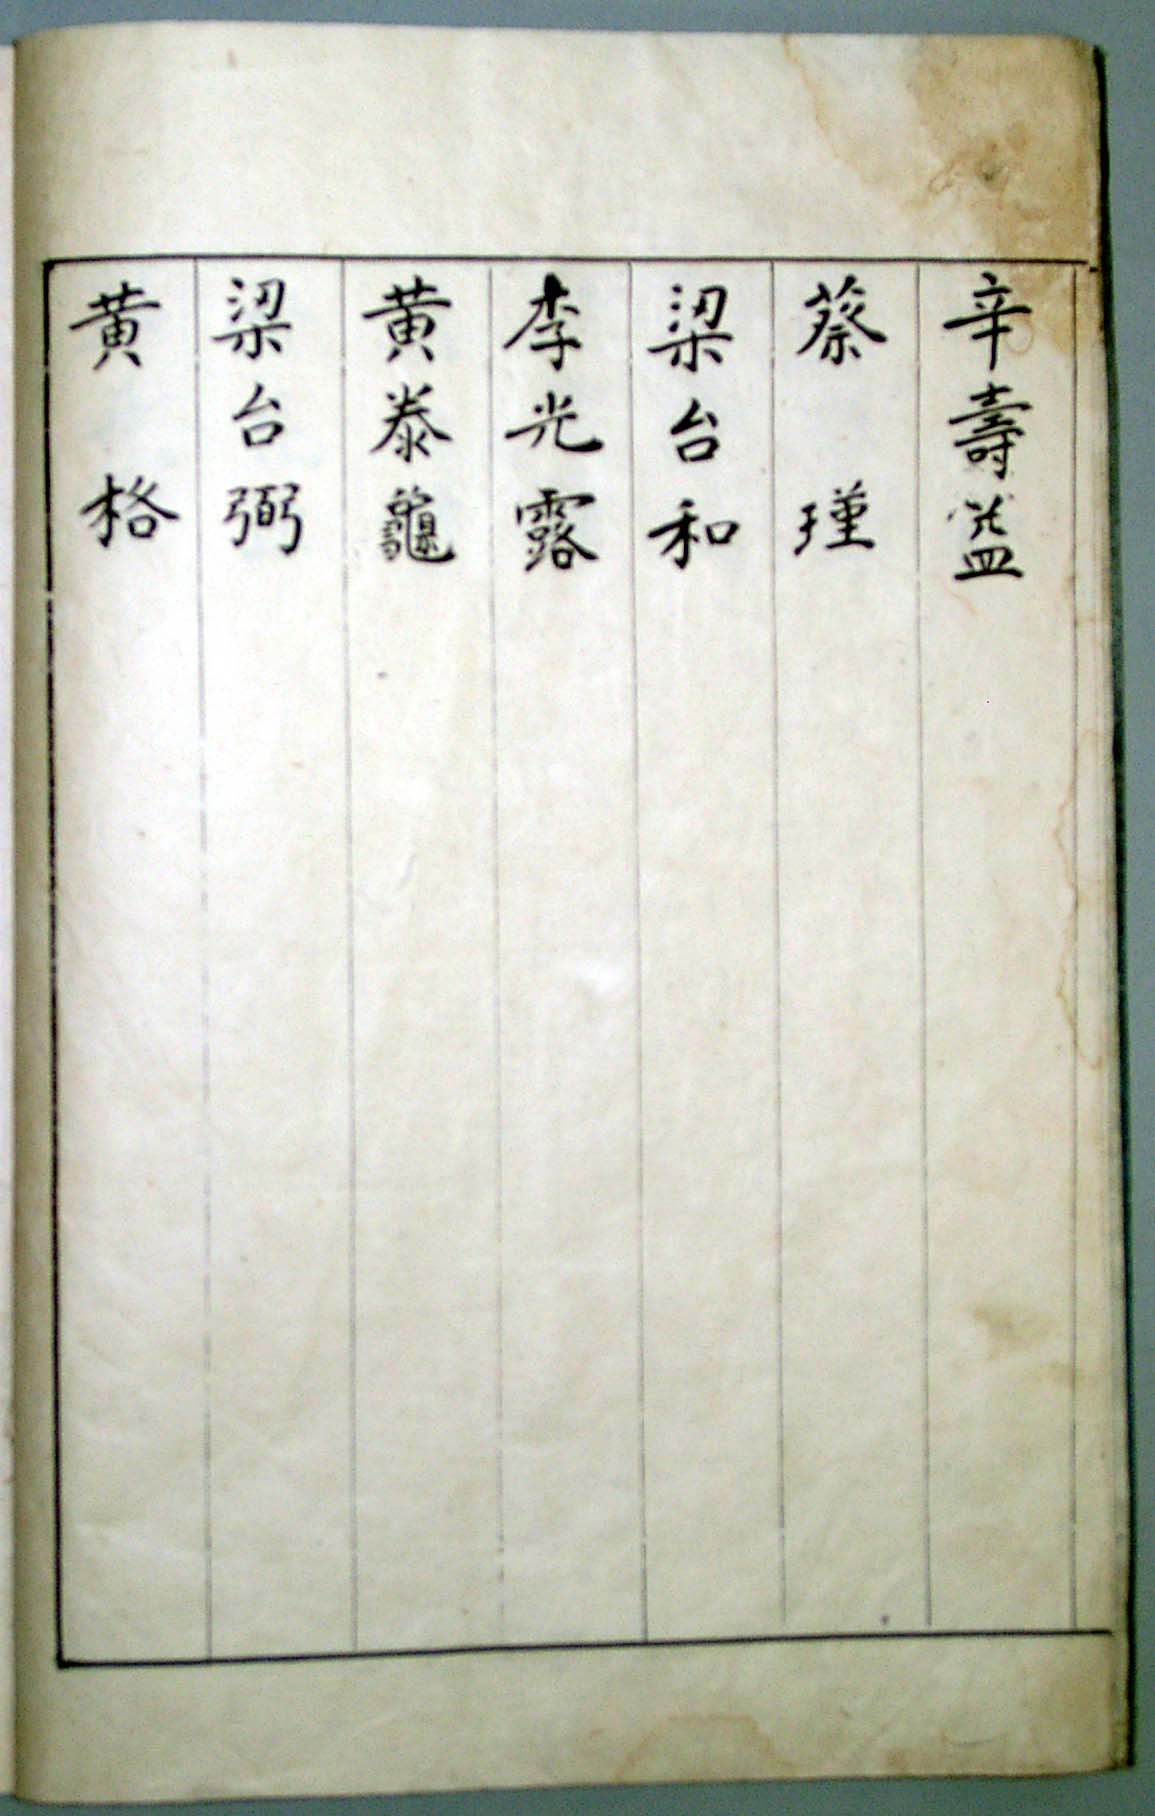 辛壽益
蔡瑾
梁台和
李光露
黄泰龜
梁台弼
黄格